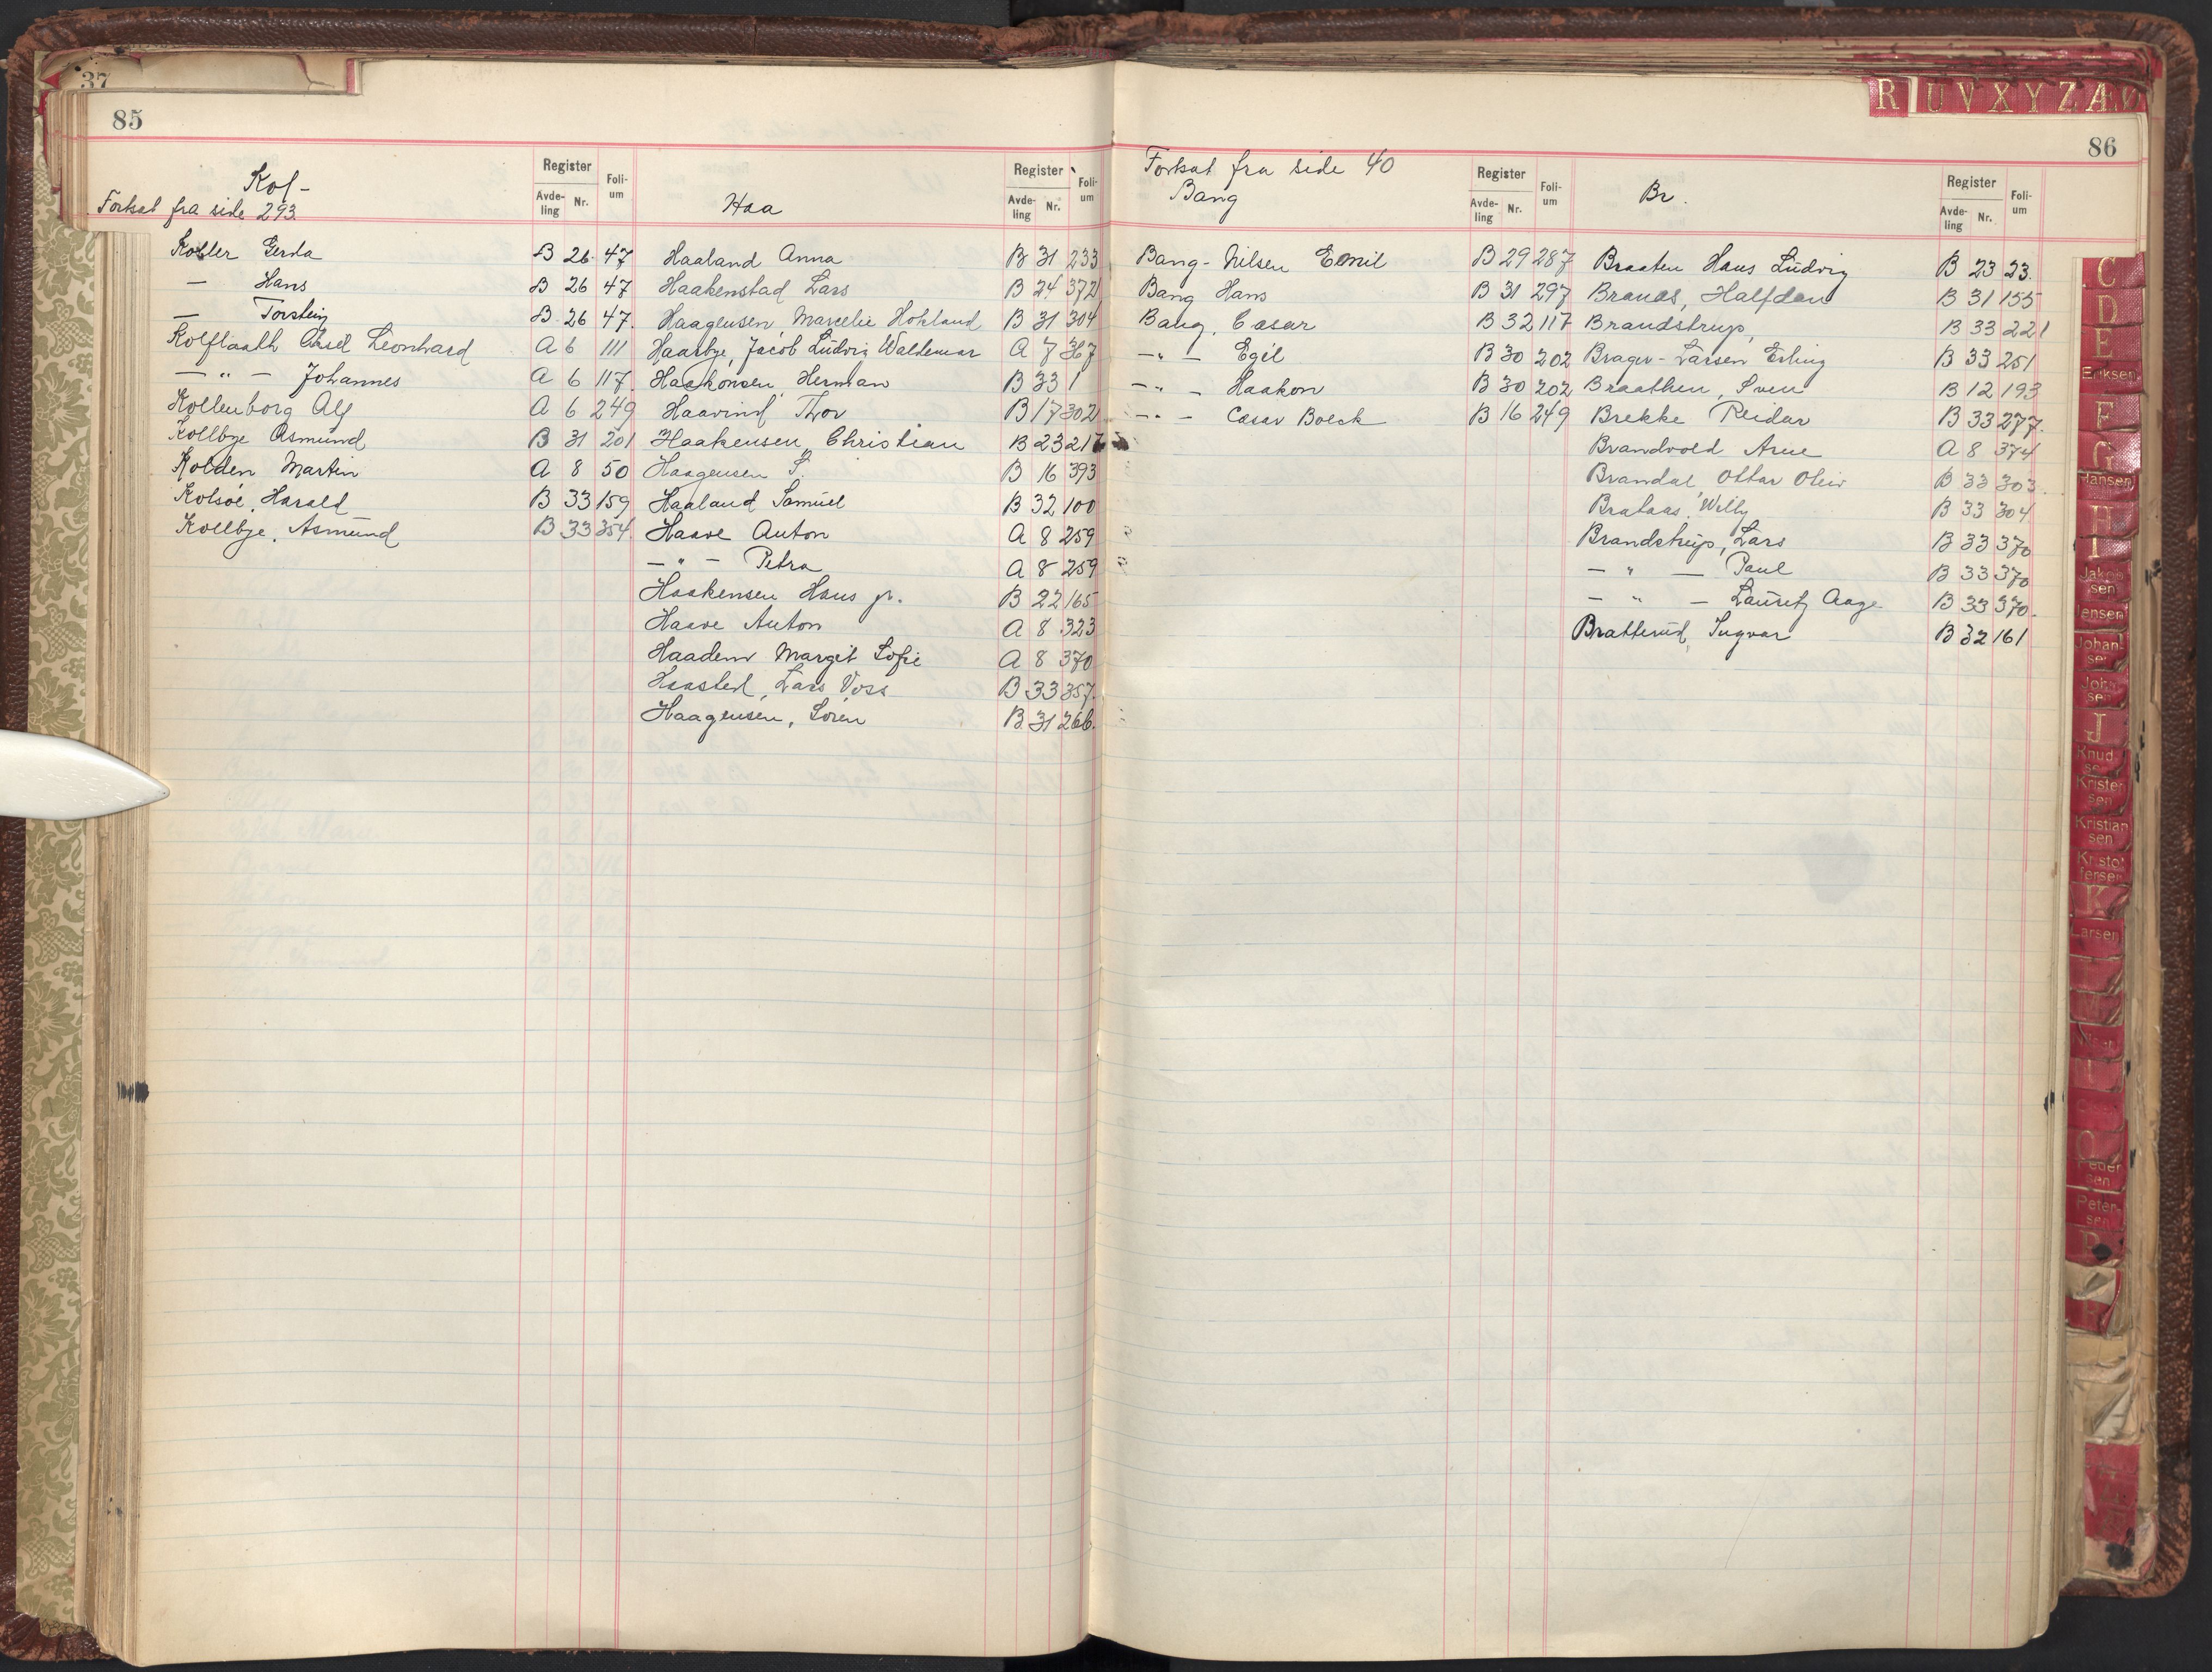 37
85
Kol-
Fortsat fra side 293
Register
Avde-ling Nr. Foli-um
Koller Gerda B 26 47
— Hans B 26 47
— Torstein B 26 47
Kolflaath Aksel Leonhard A 6 111
— " — Johannes A 6 117
Kollenborg Alf A 6 249
Kollbye Asmund B 31 201
Kolden Martin A 8 50
Kolsoe, Harald B 33 159
Kollbye, Asmund B 33 354
Haa
Register
Avde-ling Nr. Foli-um
Haaland Anna B 31 233
Haakenstad Lars B 24 372
Haagensen, Marcelie Hokland B 31 304
Haarbye, Jacob Ludvig Waldemar A 7 367
Haakonsen, Herman B 33 1
Haavind Thor B 17 302
Haakensen, Christian B 23 217
Haagensen S. B 16 393
Haaland Samuel B 32 100
Haave Anton A 8 259
— " — Petra A 8 259
Haakensen Hans jr. B 22 165
Haave Anton A 8 323
Haadem Margit Sofie A 8 370
Haasted, Lars Voss B 33 357
Haagensen, Sören B 31 266
86
Fortsat fra side 40
Bang
Register
Avde-ling Nr. Foli-um
Bang-Nilsen Emil B 29 287
Bang Hans B 31 297
Bang, Cæsar B 32 117
— " — Egil B 30 202
— " — Haakon B 30 202
— " — Cæsar Boeck B 16 249
Br.
Register
Avde-ling Nr. Foli-um
Braaten Hans Ludvig B 23 23
Brandt, Halfdan B 31 155
Brandstrup, B 33 221
Brager-Larsen Erling B 33 251
Braathen, Sven B 12 193
Brekke Reidar B 33 277
Brandvold Arne A 8 374
Brandal, Ottar Oliv B 33 303
Brataas, Willy B 33 304
Brandstrup, Lars B 33 370
— " — Paul B 33 370
— " — Lauritz Aage B 33 370
Bratterud, Ingvar B 32 161
R U V X Y Z Æ Ø
C
D
E
Eriksen
F
G
Hansen
H
I
Jakobsen
Jensen
Johansen
Johnsen
J
Knudsen
Kristensen
Kristiansen
Kristoffersen
K
Larsen
O
Pedersen
Petersen
P